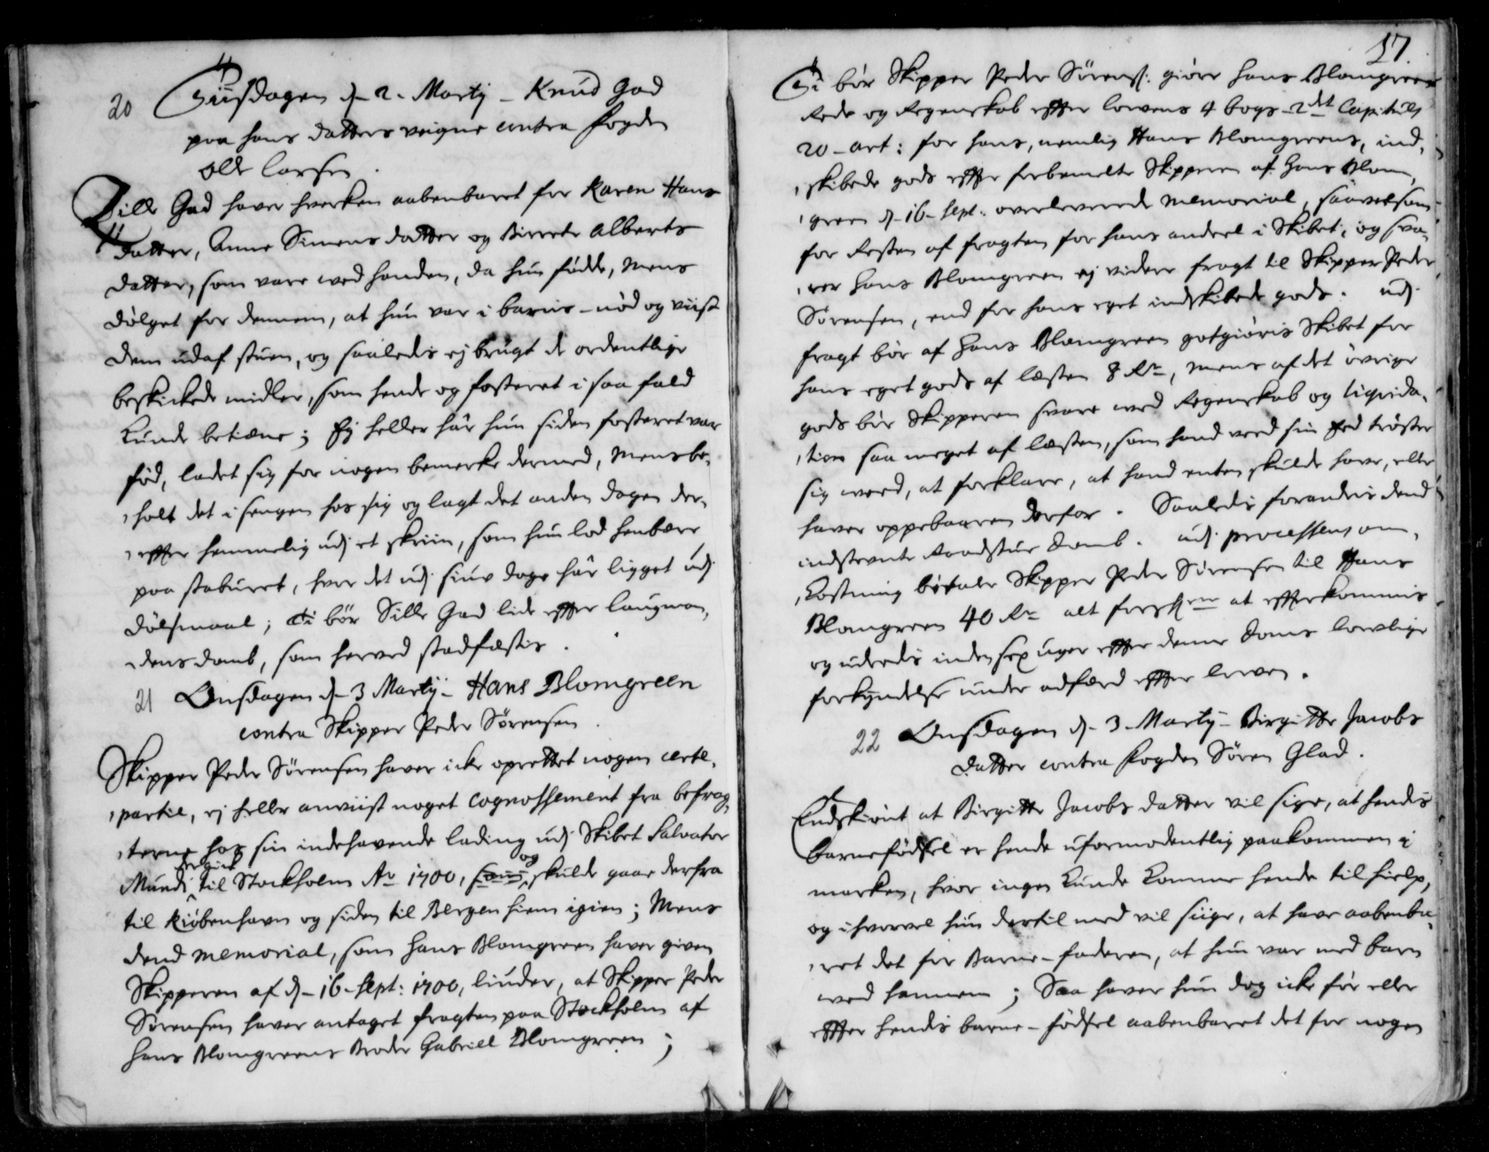 20 Tiisdagen d. 2. Martij - Knud Gad
paa hans datters veigne contra fogden
Olle Larsen.
Sille Gad haver hverken aabenbaret for Karen Hans
datter, Anne Simens datter og Birrete Alberts
datter, som vare ved handen, da hun fødde, mens
dølget for dennem, at hun var i barns-nød og viist
dem udaf stuen, og saaledis ej brugt de ordentlige
beskickede midler, som hende og fosteret i saa fald
kunde betiene; Ej heller hâr hun siden fosteret var
fød, ladet sig for nogen bemerke dermed, mens be,
,holt det i sengen hos sig og lagt det anden dagen der,
,effter hemmelig udj et skriin, som hun lod henbære
paa staburet, hvor det udj siuv dage hâr ligget udj
dølsmaal; Ti bør Sille Gad lide effter laugman,
,dens domb, som herved stadfæstes.
21 Onsdagen d. 3 Martij - Hans Blomgreen
contra Skipper Peder Sørensen.
Skipper Peder Sørensen haver icke oprettet nogen certe,
,partie, ej heller anviist noget Cognossement fra befrag,
,terne hos sin indehavende lading udj Skibet Salvator
Mundi til Stockholm Ao 1700, og skulde gaae derfra
til Kiøbenhavn og siden til Bergen hiem igien; Mens
dend Memorial, som Hans Blomgreen haver given
Skipperen af d. 16. Sept: 1700, liuder, at Skipper Peder
Sørensen haver antaget fragten paa Stockholm af
Hans Blomgreens Broder Gabriell Blomgreen;
17.
Ti bør Skipper Peder Sørens: giøre Hans Blomgreen
Rede og Regenskab effter lovens 4 bogs 2det Capituls
20 art: for hans, nemlig Hans Blomgreens, ind,
,skibede gods effter forbemelte Skipperen af Hans Blom,
,green d. 16. Sept: overleverede Memorial, saavelsom
for Resten af fragten for hans andeel i Skibet, og sva,
,rer Hans Blomgreen ej videre fragt til Skipper Peder
Sørensen, end for hans eget indskibede gods. Udj
fragt bør af Hans Blomgreen gotgiøris Skibet for
hans eget gods af læsten 8 Rdr, mens af det øvrige
gods bør Skipperen svare ved Regenskab og liqvida,
,tion saa meget af læsten, som hand ved sin Eed trøster
sig ved, at forklare, at hand enten skulde have, eller
haver oppebaaren derfor. Saaledis forandris dend
indstevnte Raadstue domb. Udj processens om,
,kostning betale Skipper Peder Sørensen til Hans
Blomgreen 40 Rdr alt at effterkommis
og udredis inden sex uger effter denne doms lovlige
forkyndelse under adfærd effter loven.
22 Onsdagen d. 3. Martij - Birgitte Jacobs
datter contra fogden Søren Glad.
Endskiønt at Birgitte Jacobs datter vil sige, at hendis
barnefødsel er hende uformodentlig paakommen i
marken, hvor ingen kunde komme hende til hielp,
og ihvorvel hun dertil med vil siige, at have aabenba,
,ret det for Barne-faderen, at hun var med barn
ved hannem; Saa haver hun dog icke før eller
effter hendis barne-fødsel aabenbaret det for nogen